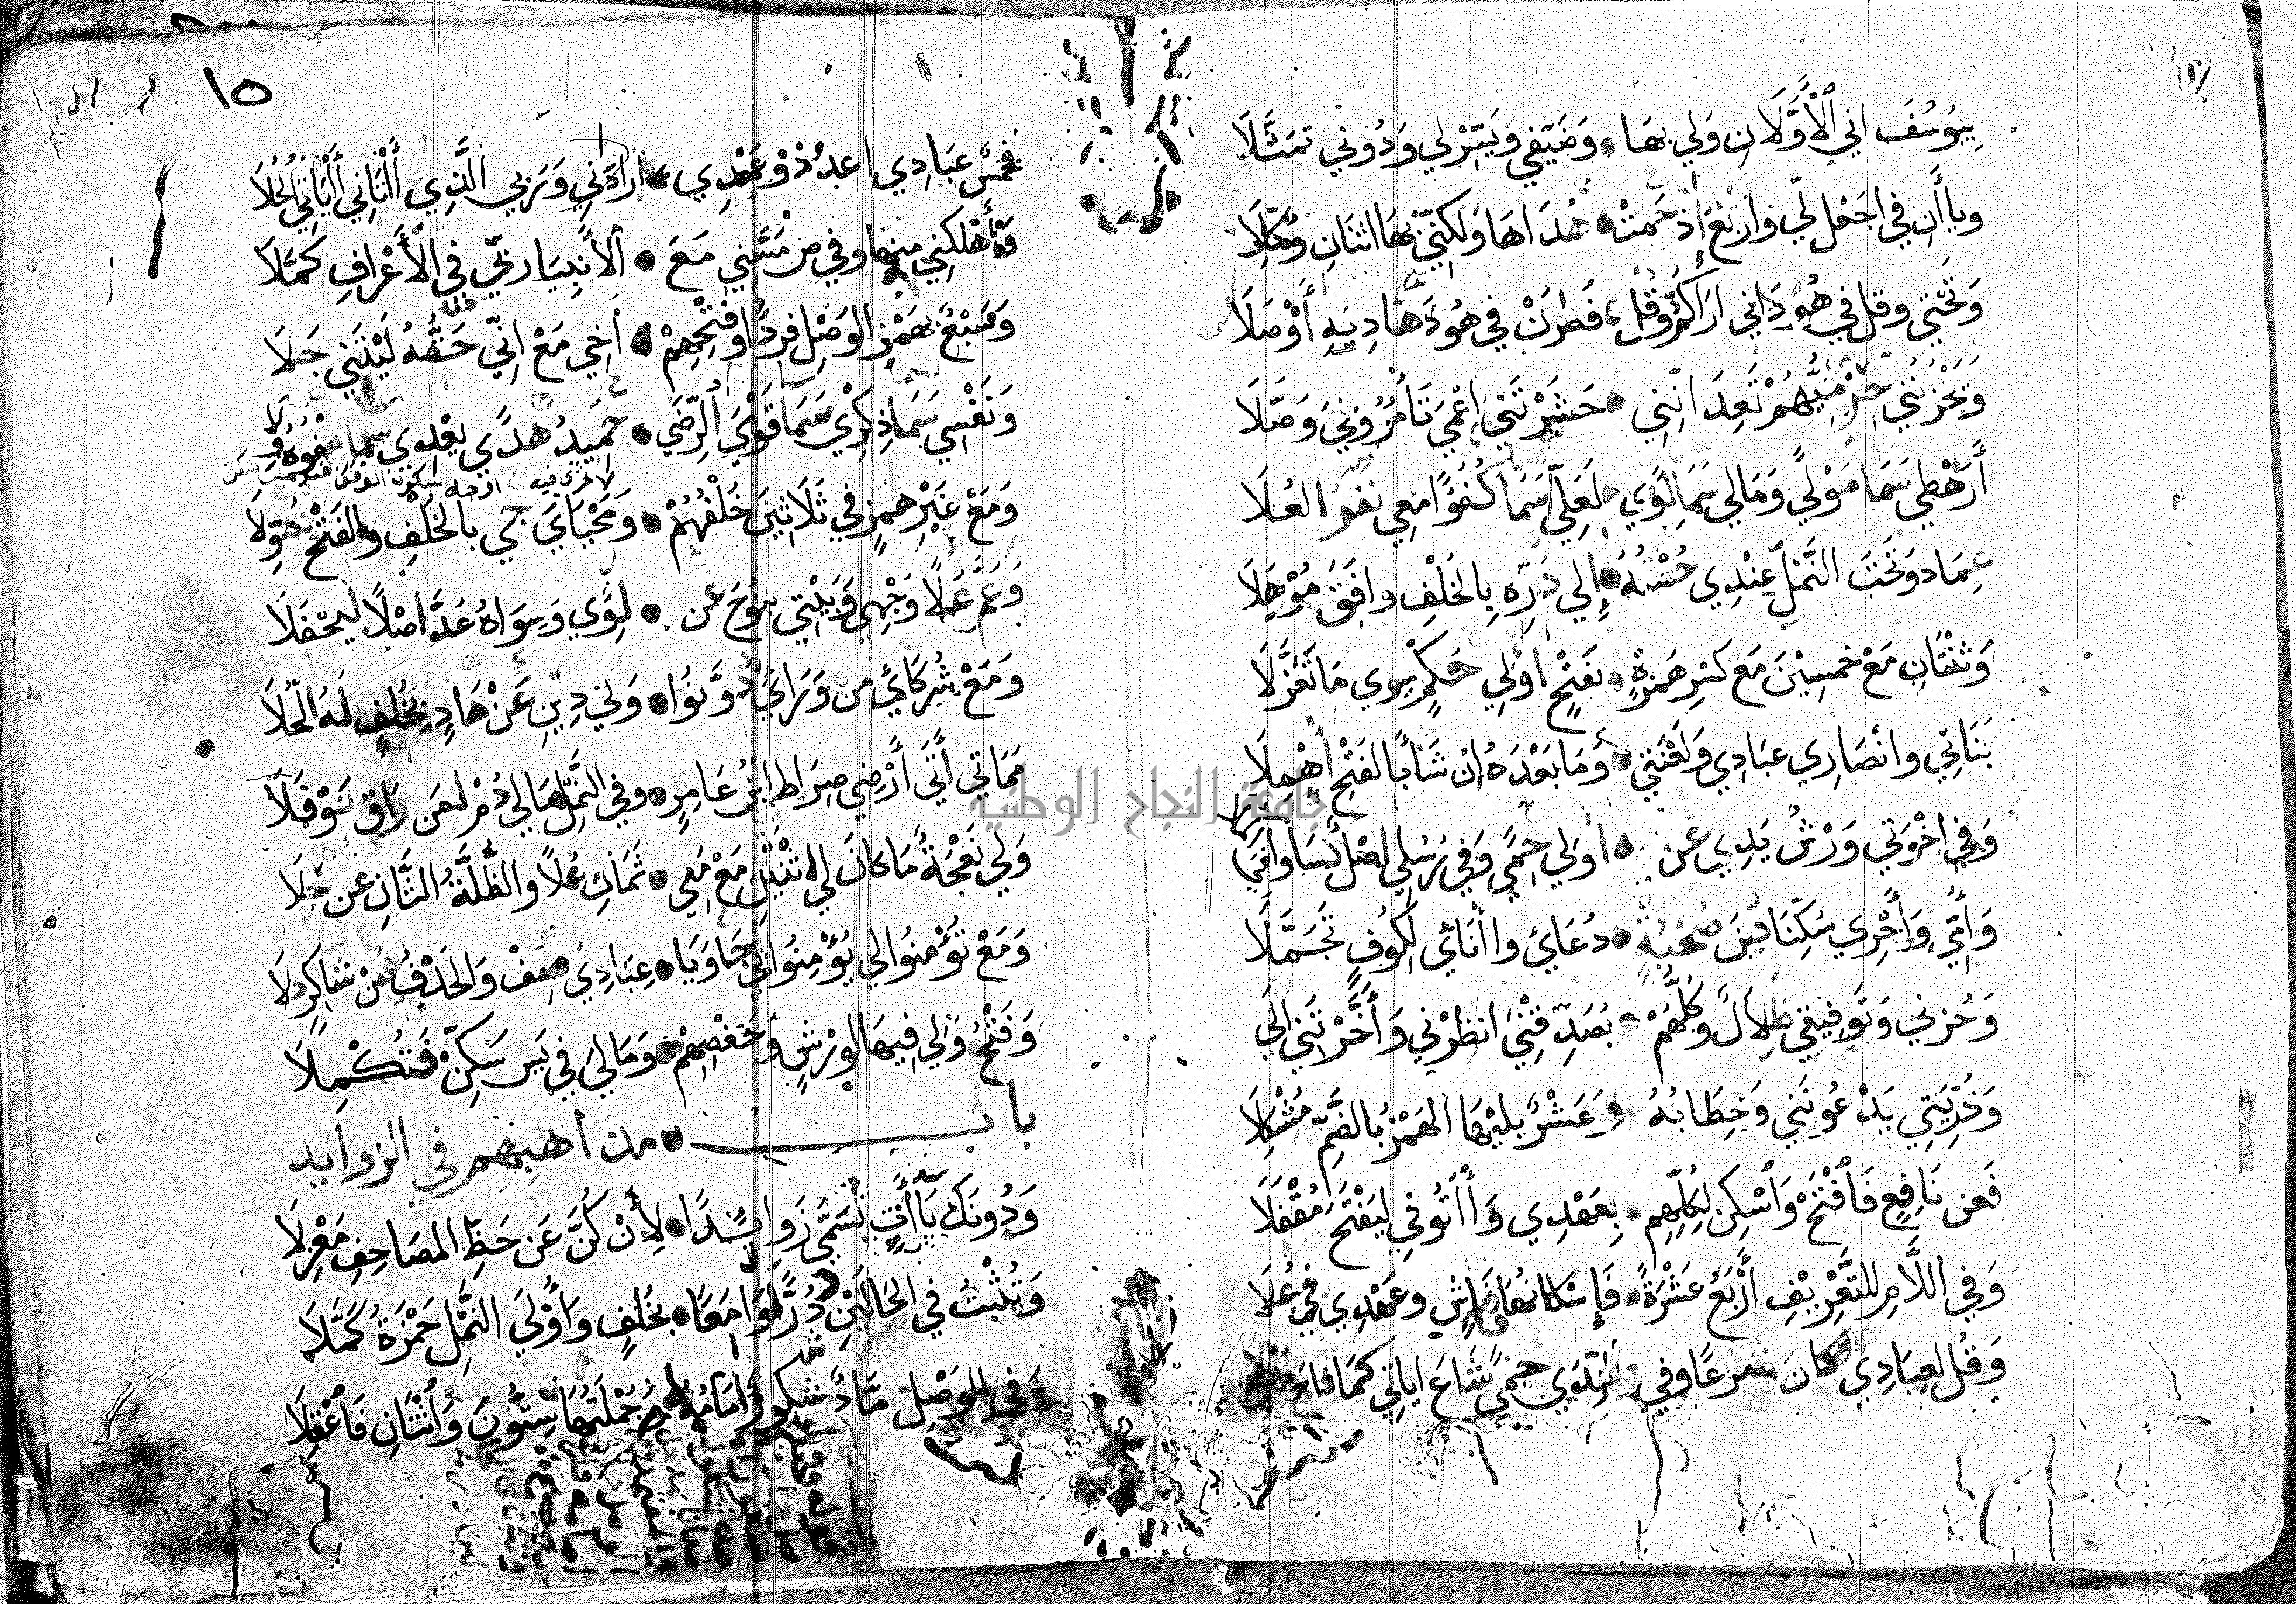 بِيُوسُفَ اني الْأَوَّلَانِ وَلِي بِهَا • وَضَيْفِي وَيَسِّرْ لِي وَدُونِي تَمَثَّلَا
وياأان في اجْعَل لّي واربَعٌ إذ حَمَتْ • هُدَاهَا وَلكِنّي بِهَا اثنَانِ وُكِّلَا
وَتَحْتِي وقل في هُودَ اني اراكُمُو وَقُل • فَطَرَنْ في هُودَ هَادِيهِ أَوْصَلَا
وَتَحْزُنُنِي حِرْمِيُّهُمْ تَعِدَانِنِي • حَشَرْتَنِي اعْمَى تَأمُرُونِيَ وَصَّلَا
أَرَهْطِي سَمَا مَوْلًى وَمَالي سَمَا لِوًى • لَعَلّي سَمَا كُفُؤًا مَعِي نَفَرُ العُلَا
عِمَاد وَتَحْتَ النَّمْلِ عِنْدِي حُسْنُهُ • إِلي دُرِّهِ بِالخُلْفِ وافَقَ مُوْهَلَا
وَثِنْتَانِ مَعْ خَمْسِيْنَ مَع كَسْرِ هَمْزَةٍ • بِفَتْحٍ اولِي حُكْمٍ سِوى مَا تَعَزَّلَا
بَنَاتِي وانْصَارِي عبَادِي وَلَعْنَتِي • وَمَا بَعْدَهُ ان شَا بالفَتْحِ أُهْمِلَا
وَفي اخْوَتي وَرْشٌ يَدِي عن • اولي حِمًى وَفي رُسُلي اصْلٌ كسَا وافيَ المُلَا
وَأُمِّي وَأَجْرِي سُكِّنَا دِينَ صُحْبَةٍ • دُعَاءِيَ وَاابَاءِي لِكُوفٍ تَجَمَّلَا
وَحُزني وَتَوفيقي ظِلاَلٌ وَكُلُّهُمْ • يُصَدّقْنِيَ انظِرْنِي وَأَخَّرْتَنِي الَى
وَذُرّيَتِي يَدْعُونَنِي وَخِطَابُهُ • وَعَشْرٌ يَليْهَا الهَمْزُ بالضَّمِّ مُشْكلَا
فَعن نَافِعٍ فَافْتَحْ وَأَسْكِن لِكُلِّهِم • بِعَهْدِي وَأاتُوني لِيَفْتَحَ مُقْفَلَا
وَفي اللَّامِ للتَّعْرِيْفِ أَرْبَعُ عَشْرَةً • فَإِسْكَانُهَا فَاشٍ وعَهْدِي في عُلَا
وَقُل لعِبَادِي كَانَ شَرعًا وَفي النّدَا حِمًى شَاعَ ايَاتي كَمَا فاحَ
١٥
فَخَمْسَ عِبَادِي اعْدُدْ وَعَهْدِي • ارَادَنِي وَرَبي الَّذِي أاتَانِي أايَاتِي الحُلَا
وَأَهْلَكَنِي منهَا وفي ص مَسَّنِي مَعَ • الأَنبِيَا ربّي في الأَعْرَافِ كمَّلَا
وَسَبْعٌ بِهَمْزِ الوَصْلِ فَرْدًا وفَتْحُهُمْ • اخِي مَعَ انّي حَقُّهُ لَيْتَنِي حَلَا
وَنَفْسِي سَمَا ذِكْرِي سَمَا قَوْمِيَ الرِّضَى • حَمِيدُ هُدًى بَعْدِي سَمَا صفوُهُ وِلَا
وَمَعْ غَيْرِ هَمْزٍ في ثَلَاثِيْنَ خُلْفُهُمْ • وَمَحْيَايَ جِي بالخُلْفِ والفَتْحُ خُوّلَا
وَعَمَّ عُلًا وَجْهِي وَبَيْتِي بِنُوحَ عن • لِوًى وَسِوَاهُ عُدَّ اصْلًا ليُحْفَلَا
وَمَعْ شُرَكَائِي من وَرَائِي دَوَّنُوا • وَلي دِينِ عَنْ هَادٍ بِخُلْفٍ لَهُ الحُلَا
مَمَاتي أَتَى أَرْضِي صِرَاطي ابْنُ عَامِرٍ • وَفي النَّمْلِ مَالي دُمْ لمن رَاق نَوْفَلَا
وَلي نَعْجَةٌ مَا كَانَ لي اثْنَيْنِ مَعْ مَعِي • ثَمَانٍ عُلًا والظُّلَّةُ الثَّانِ عن حِلَا
وَمَعْ تُؤمِنُوا لي يُؤْمِنُوا بي جَا وَيَا • عِبَادِيَ صِفْ وَالحَذْفُ عَنْ شَاكِرٍ دلَا
وَفَتْحُ وَلي فِيهَا لِوَرْشٍ وَحَفْصِهِمْ • وَمَالِيَ في يس سَكِّنْ فَتُكْمِلَا
باب • مذاهبهم في الزوايد
وَدُونَكَ يَاأاتٍ تُسَمَّى زَوايدًا • لِأَنْ كُنَّ عَن خَطِّ المصَاحِفِ مَعْزِلَا
وَتُثْبَتُ في الحَالَيْنِ دُرًّا لَوَامِعًا • بخُلفٍ وَأُوْلَى النَّمْلِ حَمْزَةُ كَمَّلَا
وَفي الوَصْلِ حَمَّادٌ شَكُورٌ إمَامُهُ • وَجُمْلَتُهَا سِتُّونَ وَاثْنَانِ فَاعْقِلَا
جامعة النجاح الوطنية